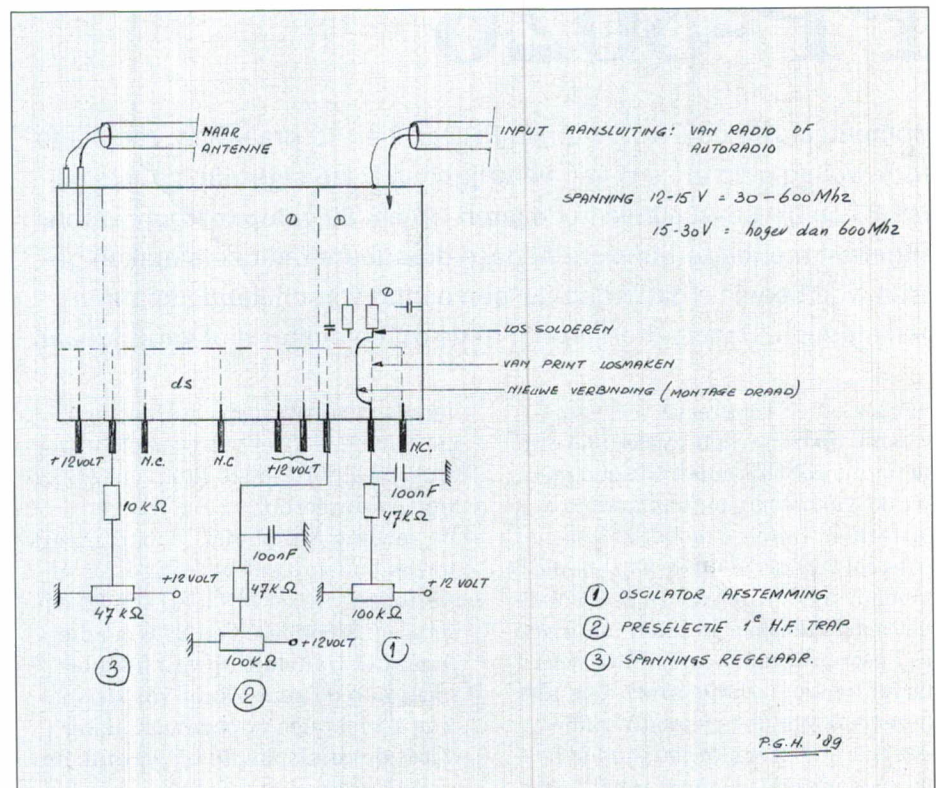 NAAR
ANTENNE
INPUT AANSLUITING: VAN RADIO OF
AUTORADIO
SPANNING 12-15 V = 30-600Mhz
15-30V = hoger dan 600Mhz
LOS SOLDEREN
VAN PRINT LOSMAKEN
NIEUWE VERBINDING (MONTAGE DRAAD)
ds
+12VOLT
N.C.
N.C
+12VOLT
N.C.
100nF
10KΩ
47KΩ
100nF
+12VOLT
47KΩ
47KΩ
+12 VOLT
100KΩ
+12VOLT
100KΩ
1
3
2
1 OSCILATOR AFSTEMMING
2 PRESELECTIE 1e H.F. TRAP
3 SPANNINGS REGELAAR.
P.G.H. '89